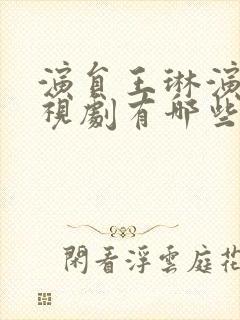 演員王琳演
視劇有哪些
閑看浮雲庭花